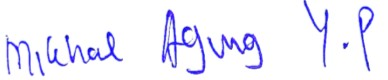 Mikhal Agung Y.P